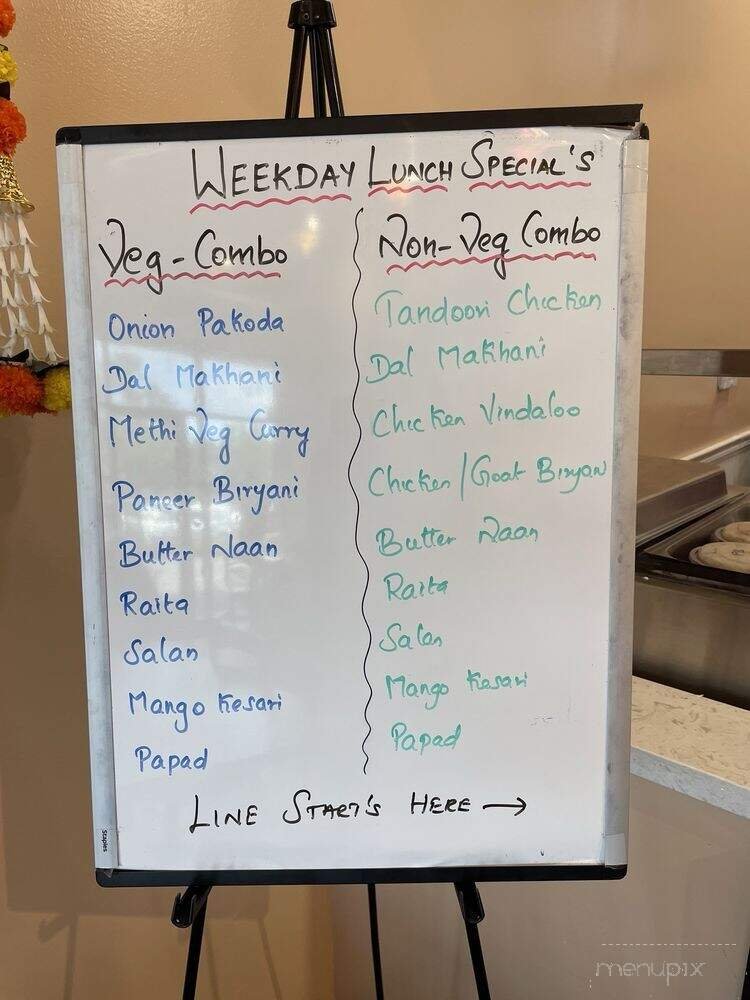 WEEKDAY LUNCH SPECIAL'S
Veg-Combo
Onion Pakoda
Dal Makhani
Methi Veg Curry
Paneer Biryani
Butter Naan
Raita
Salan
Mango Kesari
Papad
Non-Veg Combo
Tandoori Chicken
Dal Makhani
Chicken Vindaloo
Chicken/Goat Biryan
Butter Naan
Raita
Salan
Mango Kesari
Papad
LINE START'S HERE →
Staples
menupix